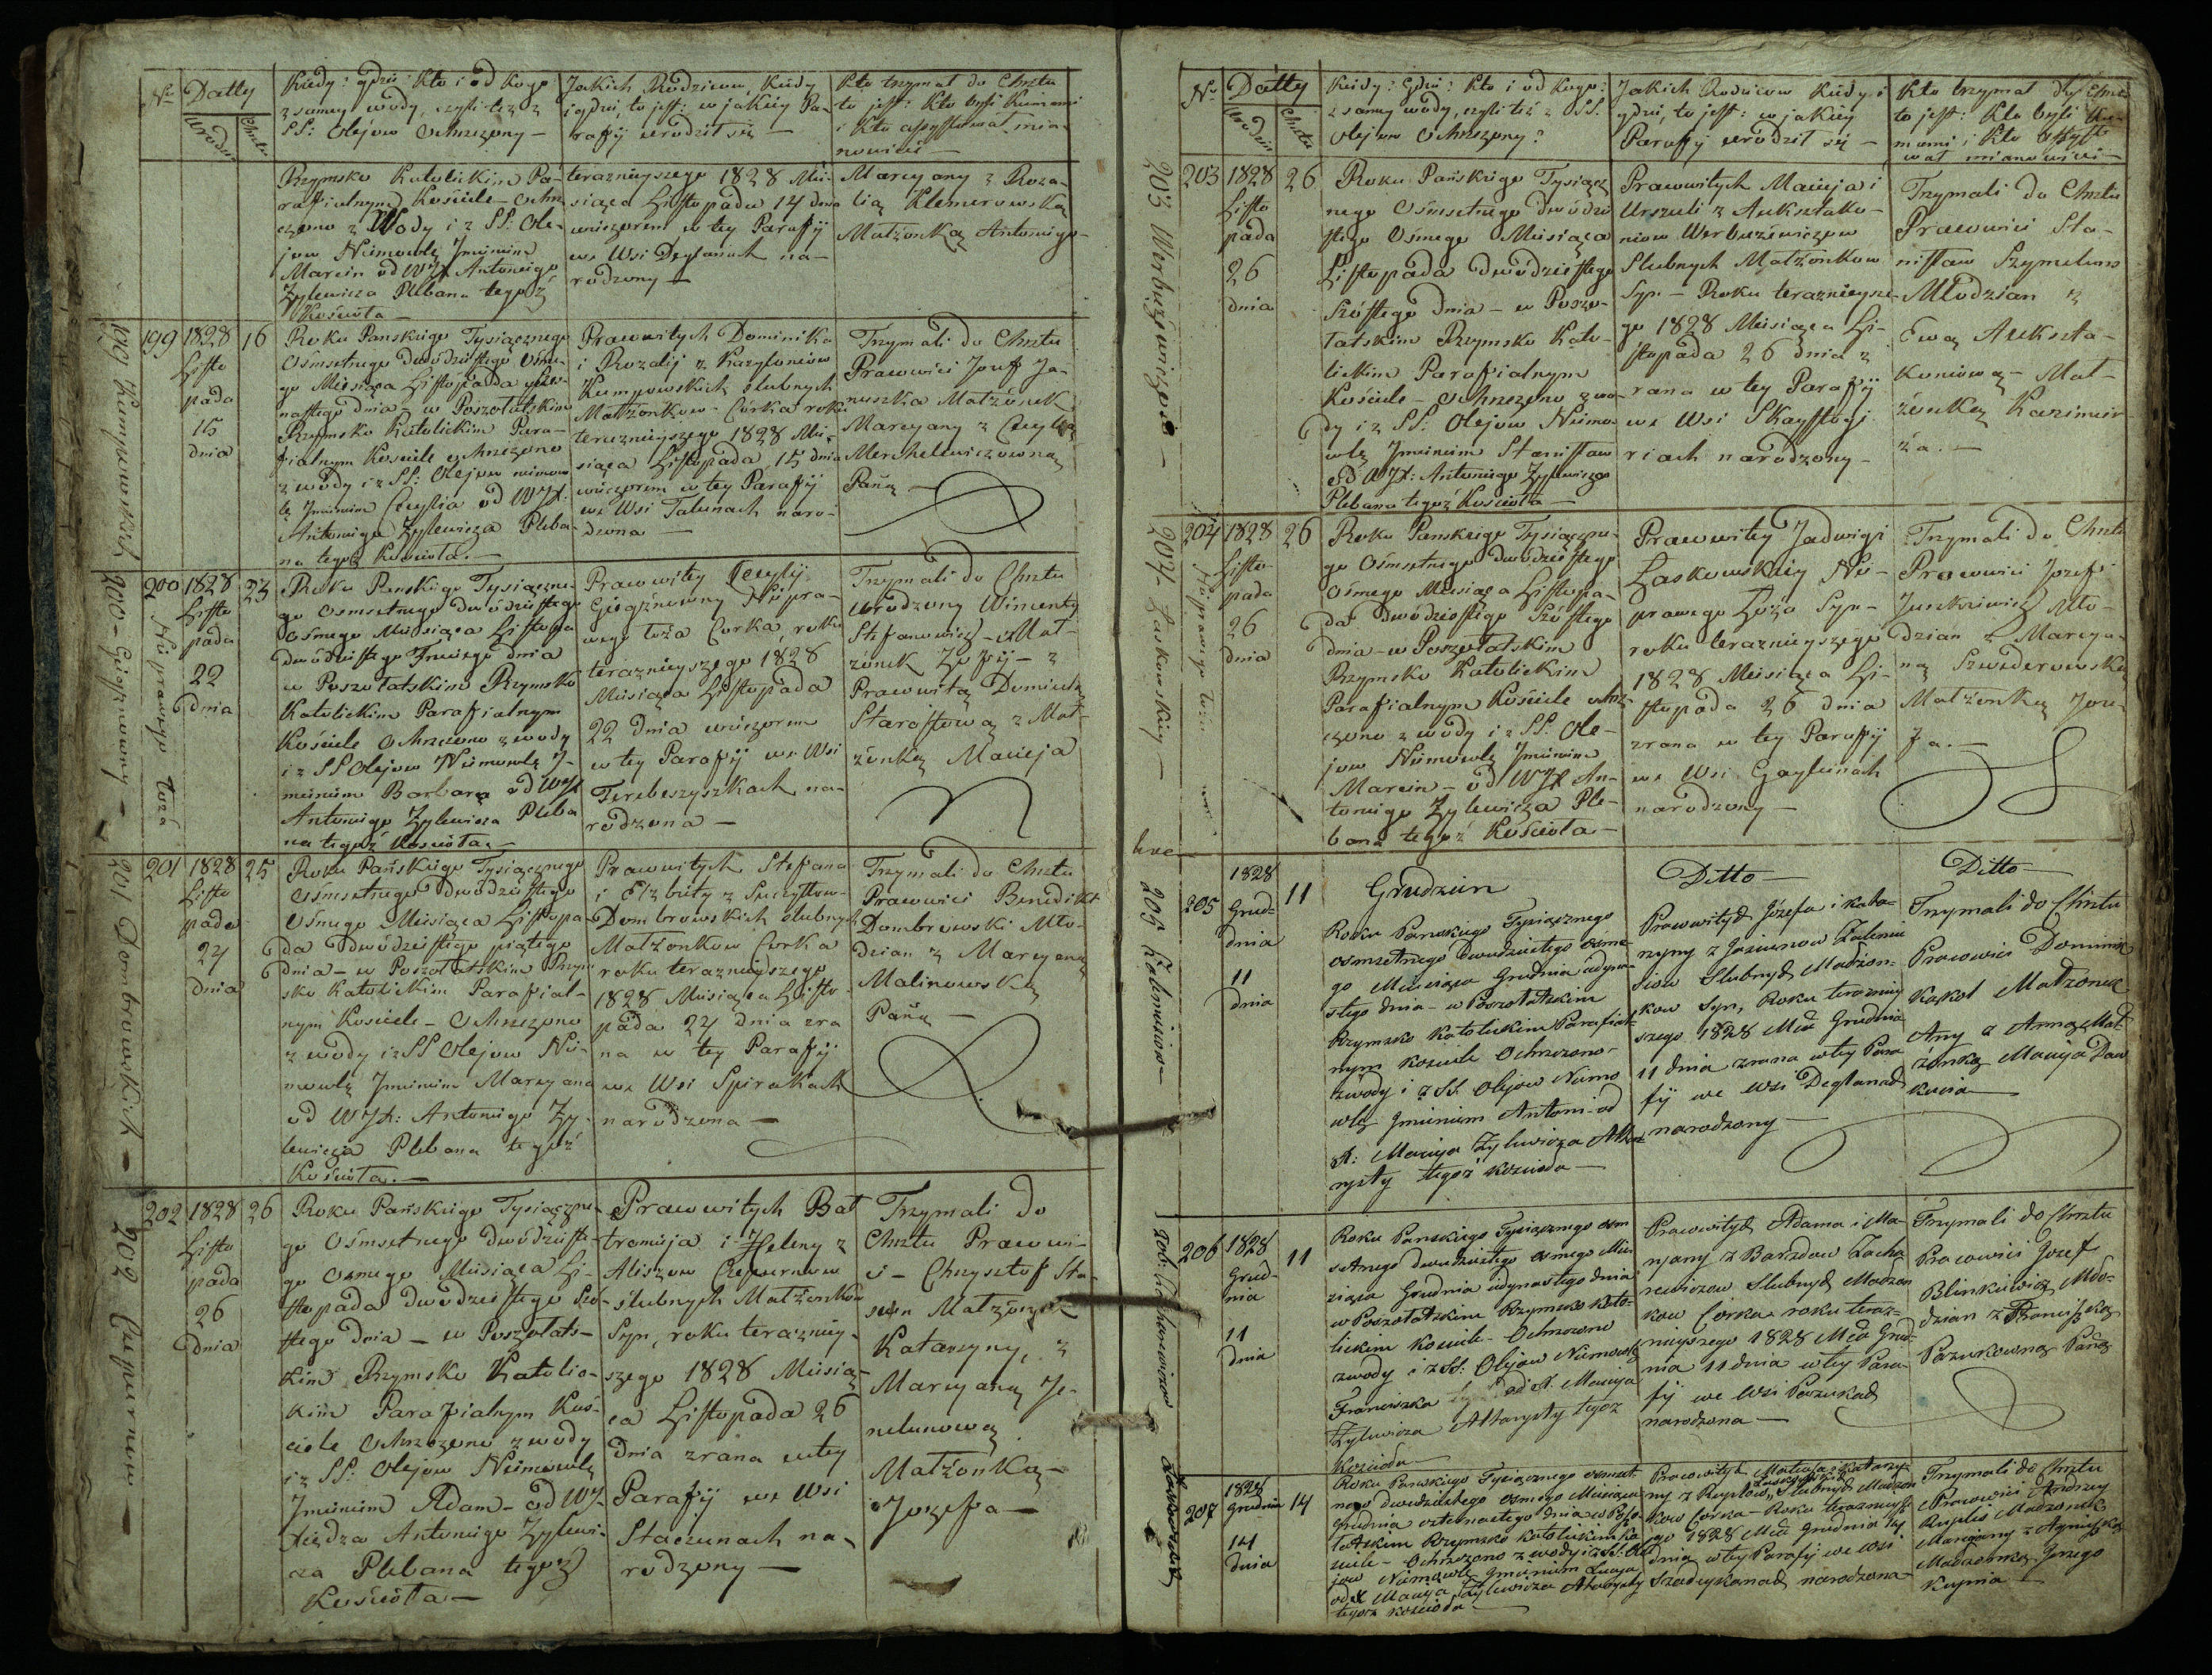 Nr
Datty
Urodze
Chrztu
Kiedy: gdzie: Kto i od Kogo
z samey wody, czyli też z
SS: Olejow Ochrzczony —
Jakich Rodzicow, Kiedy
i gdzie, to jest: w jakiey Pa-
rafij urodził się —
Kto trzymał do Chrztu
to jest: Kto byli Kumami
i Kto assystował mia-
nowicie —
Rzymsko Katolickim Pa-
rafialnym Kościele — Ochrz
czono z Wody i z SS: Ole-
jow Niemowlę Imieniem
Marcin od WJX Antoniego
Zylewicza Plebana tegoż
Kościoła —
terazniejszego 1828 Mie-
siąca Listopada 14 dnia
wieczorem w tey Parafij
we Wsi Deglanach na-
rodzony —
Marcyany z Roza-
lią Klemerowską
Małżonką Antoniego —
199 Kumpowskich
199
1828
Listo
pada
15
dnia
16
Roku Panskiego Tysiącznego
Ośmsetnego dwódziestego Osme-
go Miesiąca Listopada szes-
nastego dnia — w Poszołatskim
Rzymsko Katolickim Para-
fialnym Kosciele ochrzczono
z wody i z SS: Olejow niemow
lę Imieniem Cecylia od WJX:
Antoniego Zylewicza Pleba-
na tegoż Kościoła. —
Prawowitych Dominika
i Rozalij z
Kumpowskich slubnych
Małżonkow — Córka roku
terazniejszego 1828 Mie-
siąca Listopada 15 dnia
wieczorem w tey Parafij
we Wsi Talunach naro-
dzona —
Trzymali do Chrztu
Prawowici Jozef Ja-
nuszka Małżonek
Marcyany z Cecylią
Merkelewiczowną
Panną —
200 —
Nieprawego Łoża
200
1828
Listo
pada
22
dnia
23
Roku Panskiego Tysiączne-
go Osmsetnego dwódziestego
Osmego Miesiąca Listopa
dwódziestego Trzeciego dnia
w Poszołatskim Rzymsko
Katolickim Parafialnym
Kościele Ochrzczono z wody
i z SS Olejow Niemowlę I-
mieniem Barbara od WJX
Antoniego Zylewicza Pleba
na tegoż Kosciola. —
Prawowitey Cecylij
Niepra-
wego łoża Corka, roku
terazniejszego 1828
Miesiąca Listopada
22 dnia wieczorem
w tey Parafij we Wsi
Terebeszyszkach na-
rodzona —
Trzymali do Chrztu
Urodzony Wincenty
Stefanowicz — Mał-
żonek Zofij — z
Prawowitą Dominiką
Starostową z Mał-
żonką Macieja
201 Dombrowskich —
201
1828
Listo
pada
24
dnia
25
Roku Pańskiego Tysiącznego
Ośmsetnego dwódziestego
Osmego Miesiąca Listopa-
da dwódziestego piątego
dnia — w Poszołatskim Rzym
sko Katolickim Parafial-
nym Kosciele — Ochrzczono
z wody i z SS Olejow Nie-
mowlę Imieniem Marcyana
od WJX: Antoniego Zy-
lewicza Plebana tegoż
Kościoła. —
Prawowitych Stefana
i Elzbiety z
Dombrowskich slubnych
Małżonkow Corka
roku terazniejszego
1828 Miesiąca Listo-
pada 24 dnia zra
na w tey Parafij
we Wsi Spirakach
narodzona —
Trzymali do Chrztu
Prawowici Benedikt
Dombrowski Mło-
dzian z Marcyaną
Malinowską
Panną —
202 Czepurnow —
202
1828
Listo
pada
26
dnia
26
Roku Pańskiego Tysiączne-
go Ośmsetnego dwódzieste-
go Osmego Miesiąca Li-
stopada dwódziestego Szó-
stego dnia — w Poszołats-
kim Rzymsko Katolic-
kim Parafialnym Koś-
ciele Ochrzczono z wody
i z SS: Olejow Niemowlę
Imieniem Adam — od WJ-
Xiędza Antoniego Zylewi-
cza Plebana tegoż
Kościoła —
Prawowitych Bał
tromieja i Heleny z
Aliszow Czepurnow
slubnych Małżonkow
Syn, roku terazniej-
szego 1828 Miesią-
ca Listopada 26
dnia zrana w tey
Parafij we Wsi
Staczunach na-
rodzony —
Trzymali do
Chrztu Prawowi-
ci — Chrysztof Sta-
Małżonek
Katarzyny, z
Marcyaną Je-
nelunową
Małżonką —
Jozefa —
Nr
Datty
Urodze
Chrztu
Kiedy: Gdzie: Kto i od Kogo:
z samey wody, czyli też z SS.
Olejow Ochrzczony?
Jakich Rodzicow Kiedy i
gdzie, to jest: w jakiey
Parafij urodził się —
Kto trzymał do Chrztu
to jest: Kto byli Ku-
mami i Kto assysto
wał mianowicie —
203 Werbuzewiczow —
203
1828
Listo
pada
26
dnia
26
Roku Pańskiego Tysiącz
nego Ośmsetnego dwódzie
stego Osmego Miesiąca
Listopada dwódziestego
Szóstego dnia — w Poszo-
łatskim Rzymsko Kato-
lickim Parafialnym
Kościele — ochrzczono z wo-
dy i z SS: Olejow Niemo-
wlę Imieniem Stanisław
od WJX: Antoniego Zylewicza
Plebana tegoż Kościoła —
Prawowitych Macieja i
Urszuli z Auksztako-
niow Werbuzewiczow
Slubnych Małżonkow
Syn — Roku terazniejsze-
go 1828 Miesiąca Li-
stopada 26 dnia z
rana w tey Parafij
we Wsi Skaystogi
riach narodzony —
Trzymali do Chrztu
Prawowici Sta-
nisław Szymeluns
Młodzian z
Ewą Aukszta-
koniową — Mał-
żonką Kazimier-
za. —
204 Laskowskiey —
Nieprawego łoża
204
1828
Listo-
pada
26
dnia
26
Roku Panskiego Tysiączne-
go Ośmsetnego dwódziestego
Ośmego Miesiąca Listopa-
da Dwódziestego Szóstego
dnia — w Poszołatskim
Rzymsko Katolickim
Parafialnym Kościele ochrz-
czono z wody i z SS: Ole-
jow Niemowlę Imieniem
Marcin — od WJX An-
toniego Zylewicza Ple-
bana tegoż Kościoła —
Prawowitey Jadwigi
Laskowskiey Nie-
prawego Łoża Syn —
roku terazniejszego
1828 Miesiąca Li-
stopada 26 dnia
zrana w tey Parafij
we Wsi Gayluńach
narodzony —
Trzymali do Chrztu
Prawowici Jozef
Juszkiewicz Mło-
dzian z Marcya-
ną Szwederowską
Małżonką Joze-
fa. —
205 Zaleniasow
205
1828
Grud-
dnia
11
dnia
11
Grudzien
Roku Panskiego Tysiącznego
osmsetnego Dwudziestego osme-
go Miesiąca Grudnia jedyna-
stego dnia — w Poszołatskim
Rzymsko Katolickim Parafial-
nym Kosciele Ochrzczono
z wody i z SS. Olejow Niemo
wlę Imieniem Antoni — od
X: Macieja Zylewicza Altar
rysty tegoż Kościoła —
Ditto —
Prawowitych Józefa i Kata-
rzyny z Jasiunow Zalenia
siow Slubnych Małżon-
kow Syn, Roku terazniej
szego 1828 Mca Grudnia
11 dnia zrana w tey Para
fij we Wsi Deglanach
narodzony —
Ditto —
Trzymali do Chrztu
Prawowici Dominik
Kakol Małżonek
Any z Anną Mał
żonką Macieja Daw
kucia —
206. Zacharewiczow
206
1828
Grud-
nia
11
dnia
11
Roku Panskiego Tysiącznego osm
setnego dwudziestego osmego Mie-
siąca Grudnia jedynastego dnia
w Poszołatskim Rzymsko Kato-
lickim Kosciele — Ochrzczono
z wody i z SS: Olejow Niemowlę
Franciszka od X. Macieja
Zylewicza Altarysty tegoz
Kościoła —
Prawowitych Adama i Ma-
ryany z Barzdow Zacha
rewiczow Slubnych Małżon
kow Corka roku teraz-
niejszego 1828 Mca Grud-
nia 11 dnia w tey Para-
fij we Wsi Pazukach
narodzona —
Trzymali do Chrztu
Prawowici Jozef
Blinkiewicz Mło-
dzian z Franciszką
Pazukowną Panną
207
1828
Grudnia
14
dnia
14
Roku Panskiego Tysiącznego osmset
nego Dwudziestego osmego Miesiąca
Grudnia czternastego dnia w Poszo-
łatskim Rzymsko Katolickim Ko
sciele — Ochrzczono z wody i z SS. Ole
jow Niemowlę Imieniem Łucya
od X Macieja Zylewicza Altarysty
tegoz Kościoła —
Prawowitych Mateusza i Katarzy-
ny z Ruplow Slubnych Małżon
kow Corka — Roku terazniejsze
go 1828 Mca Grudnia 14
dnia w tey Parafij we Wsi
narodzona —
Trzymali do Chrztu
Prawowici Andrzey
Ruplis Małżonek
Maryanny z Agnieszką
Małżonką Jerzego